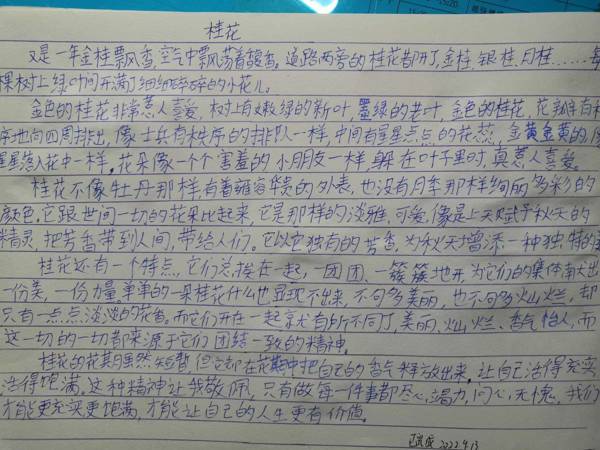 桂花
又是一年金桂飘香,空气中飘荡着馥香,道路两旁的桂花都开了,金桂,银桂,月桂……每
棵树上绿叶间开满了细细碎碎的小花儿。
金色的桂花非常惹人喜爱,树上有嫩绿的新叶,墨绿的老叶,金色的桂花,花瓣有秩
序地向四周排出,像士兵有秩序的排队一样,中间有星星点点的花蕊,金黄金黄的,
星星落入花中一样。花朵像一个个害羞的小朋友一样,躲在叶子里时,真惹人喜爱。
桂花不像牡丹那样,有着雍容华贵的外表,也没有月季那样绚丽多彩的
颜色,它跟世间一切的花朵比起来,它是那样的淡雅,可爱,像是上天赋予秋天的
精灵,把芳香带到人间,带给人们。它以它独有的芳香,为秋天增添一种独特的
桂花还有一个特点,它们总挨在一起,一团团、一簇簇地开,为它们的集体献出
一份美,一份力量。单单的一朵桂花什么也显现不出来,不问多美丽,也不问多灿烂,却
只有一点点淡淡的花香。而它们开在一起就有所不同了,美丽,灿烂、香气怡人,而
这一切的一切都来源于它们团结一致的精神。
桂花的花期虽然短暂,但它却在花期中把自己的香气释放出来,让自己活得充实,
活得饱满,这种精神让我敬佩,只有做每一件事都尽心竭力,问心无愧,我们
才能更充实更饱满,才能让自己的人生更有价值。
2022.9.13